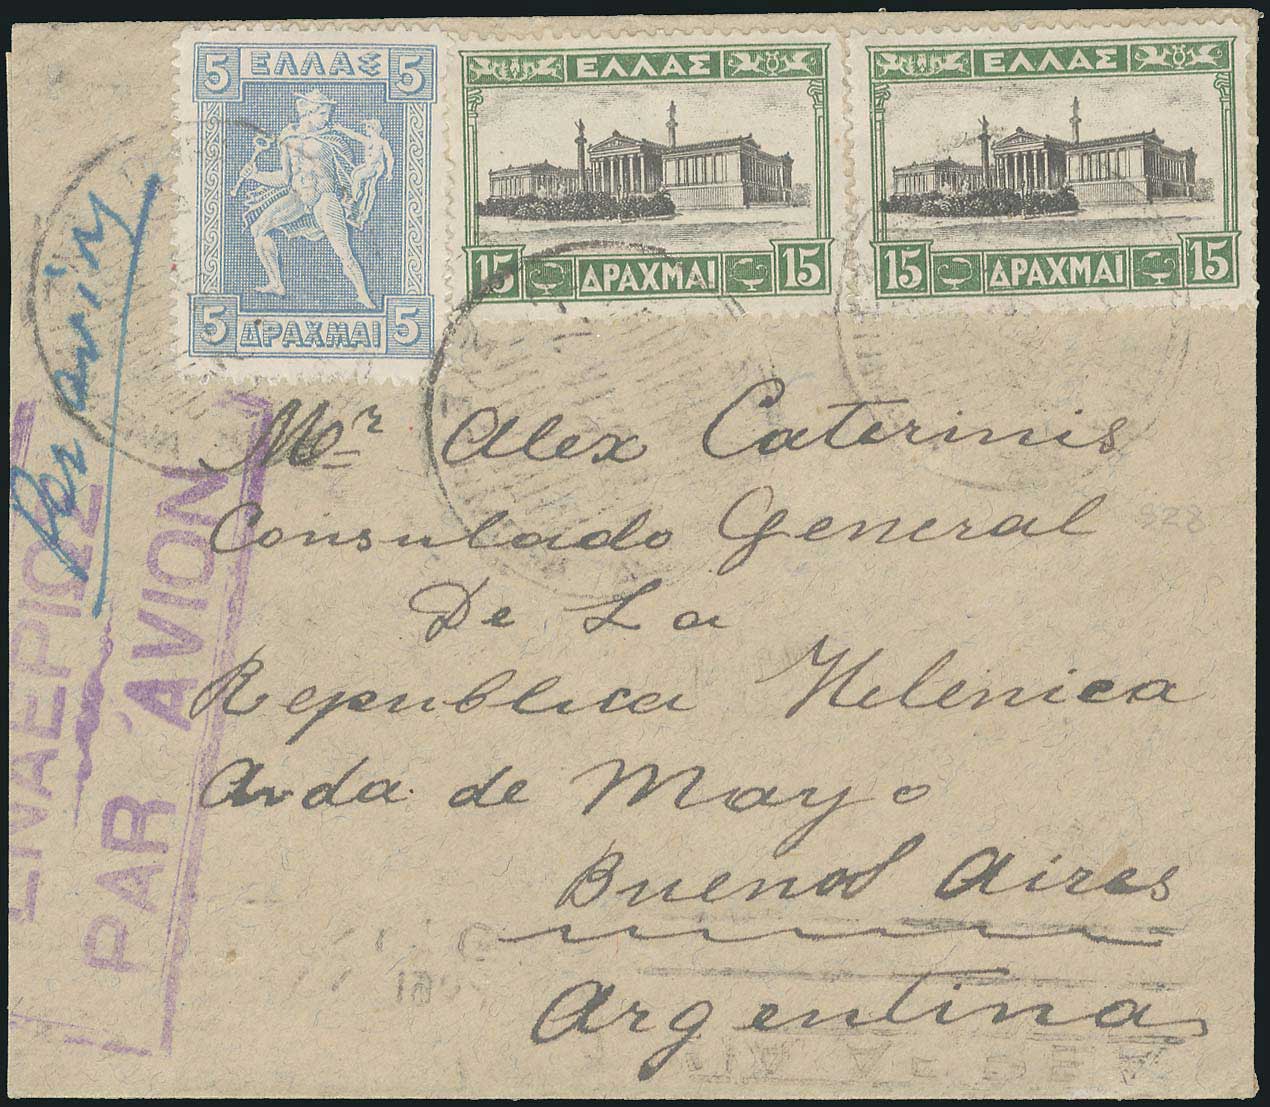 5 ΕΛΛΑΣ 5
5 ΔΡΑΧΜΑΙ 5
ΕΛΛΑΣ
15 ΔΡΑΧΜΑΙ 15
ΕΛΛΑΣ
15 ΔΡΑΧΜΑΙ 15
Per avion
ΕΝΑΕΡΙΩΣ
PAR AVION
Mr Alex Caterinis
Consulado General
De La
Republica Helenica
Avda. de Mayo
Buenos Aires
Argentina
928